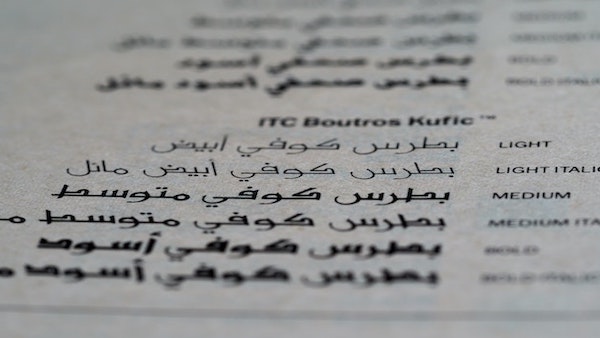 بطرس صحفي أسود BOLD
بطرس صحفي أسود مائل BOLD ITALIC
ITC Boutros Kufic™
بطرس كوفي أبيض LIGHT
بطرس كوفي أبيض مائل LIGHT ITALIC
بطرس كوفي متوسط MEDIUM
بطرس كوفي متوسط MEDIUM ITA
بطرس كوفي أسود BOLD
بطرس كوفي أسود BOLD ITALIC